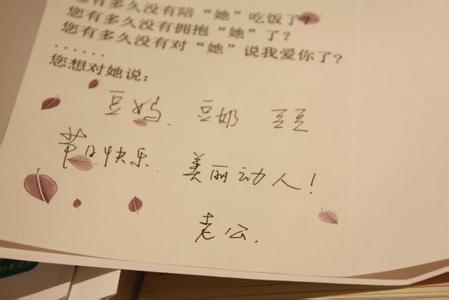 您有多久没有陪“她”吃饭了？
您有多久没有拥抱“她”了？
您有多久没有对“她”说我爱你了？
……
您想对她说：
豆妈 豆奶 豆豆
节日快乐 美丽动人！
老公.